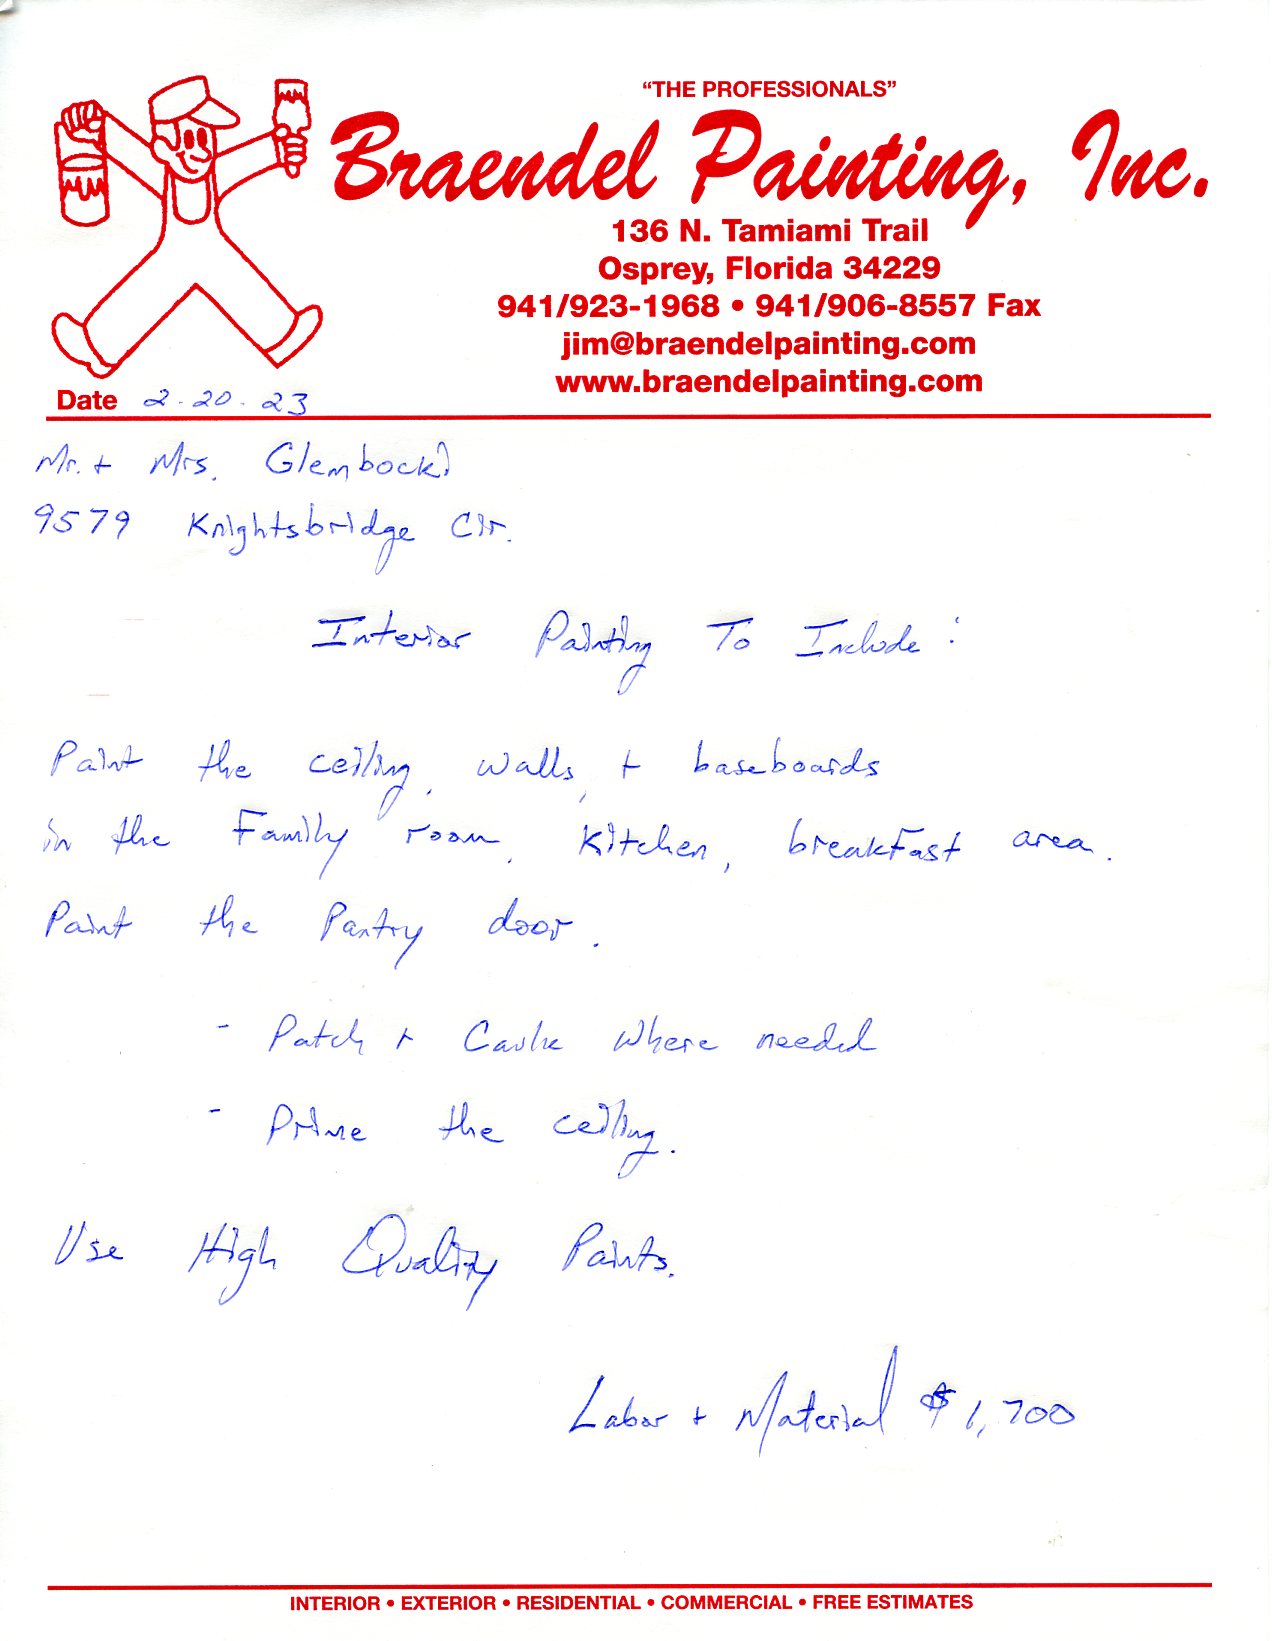 “THE PROFESSIONALS”
Braendel Painting, Inc.
136 N. Tamiami Trail
Osprey, Florida 34229
941/923-1968 • 941/906-8557 Fax
jim@braendelpainting.com
www.braendelpainting.com
Date 2-20-23
Mr. + Mrs. Glembocki
9579 Knightsbridge Cir.
Interior Painting To Include:
Paint the ceiling, walls, + baseboards
in the Family room, Kitchen, breakfast area.
Paint the Pantry door.
- Patch + Caulk Where needed
- Prime the ceiling.
Use High Quality Paints.
Labor + Material $1,700
INTERIOR • EXTERIOR • RESIDENTIAL • COMMERCIAL • FREE ESTIMATES